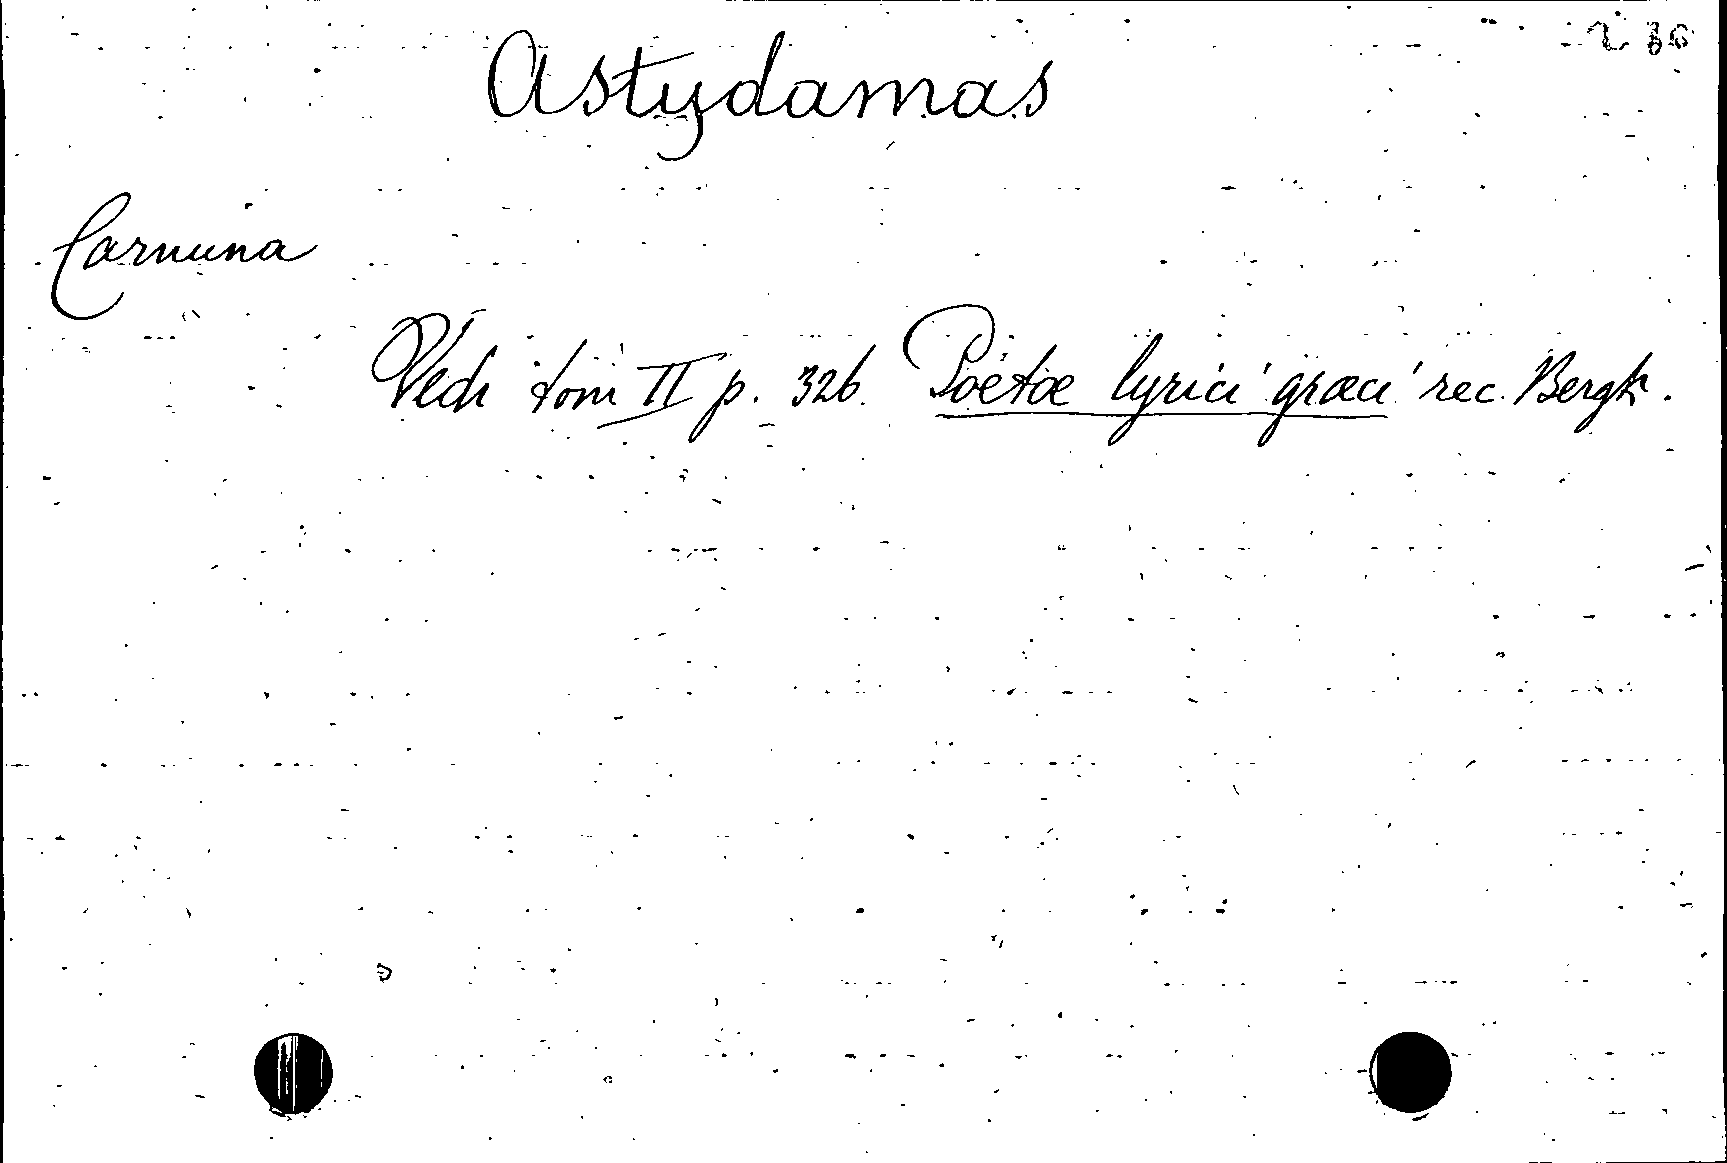 Astydamas
Carmina
Vedi tom II p. 326. Poëtae lyrici graeci rec. Bergk.